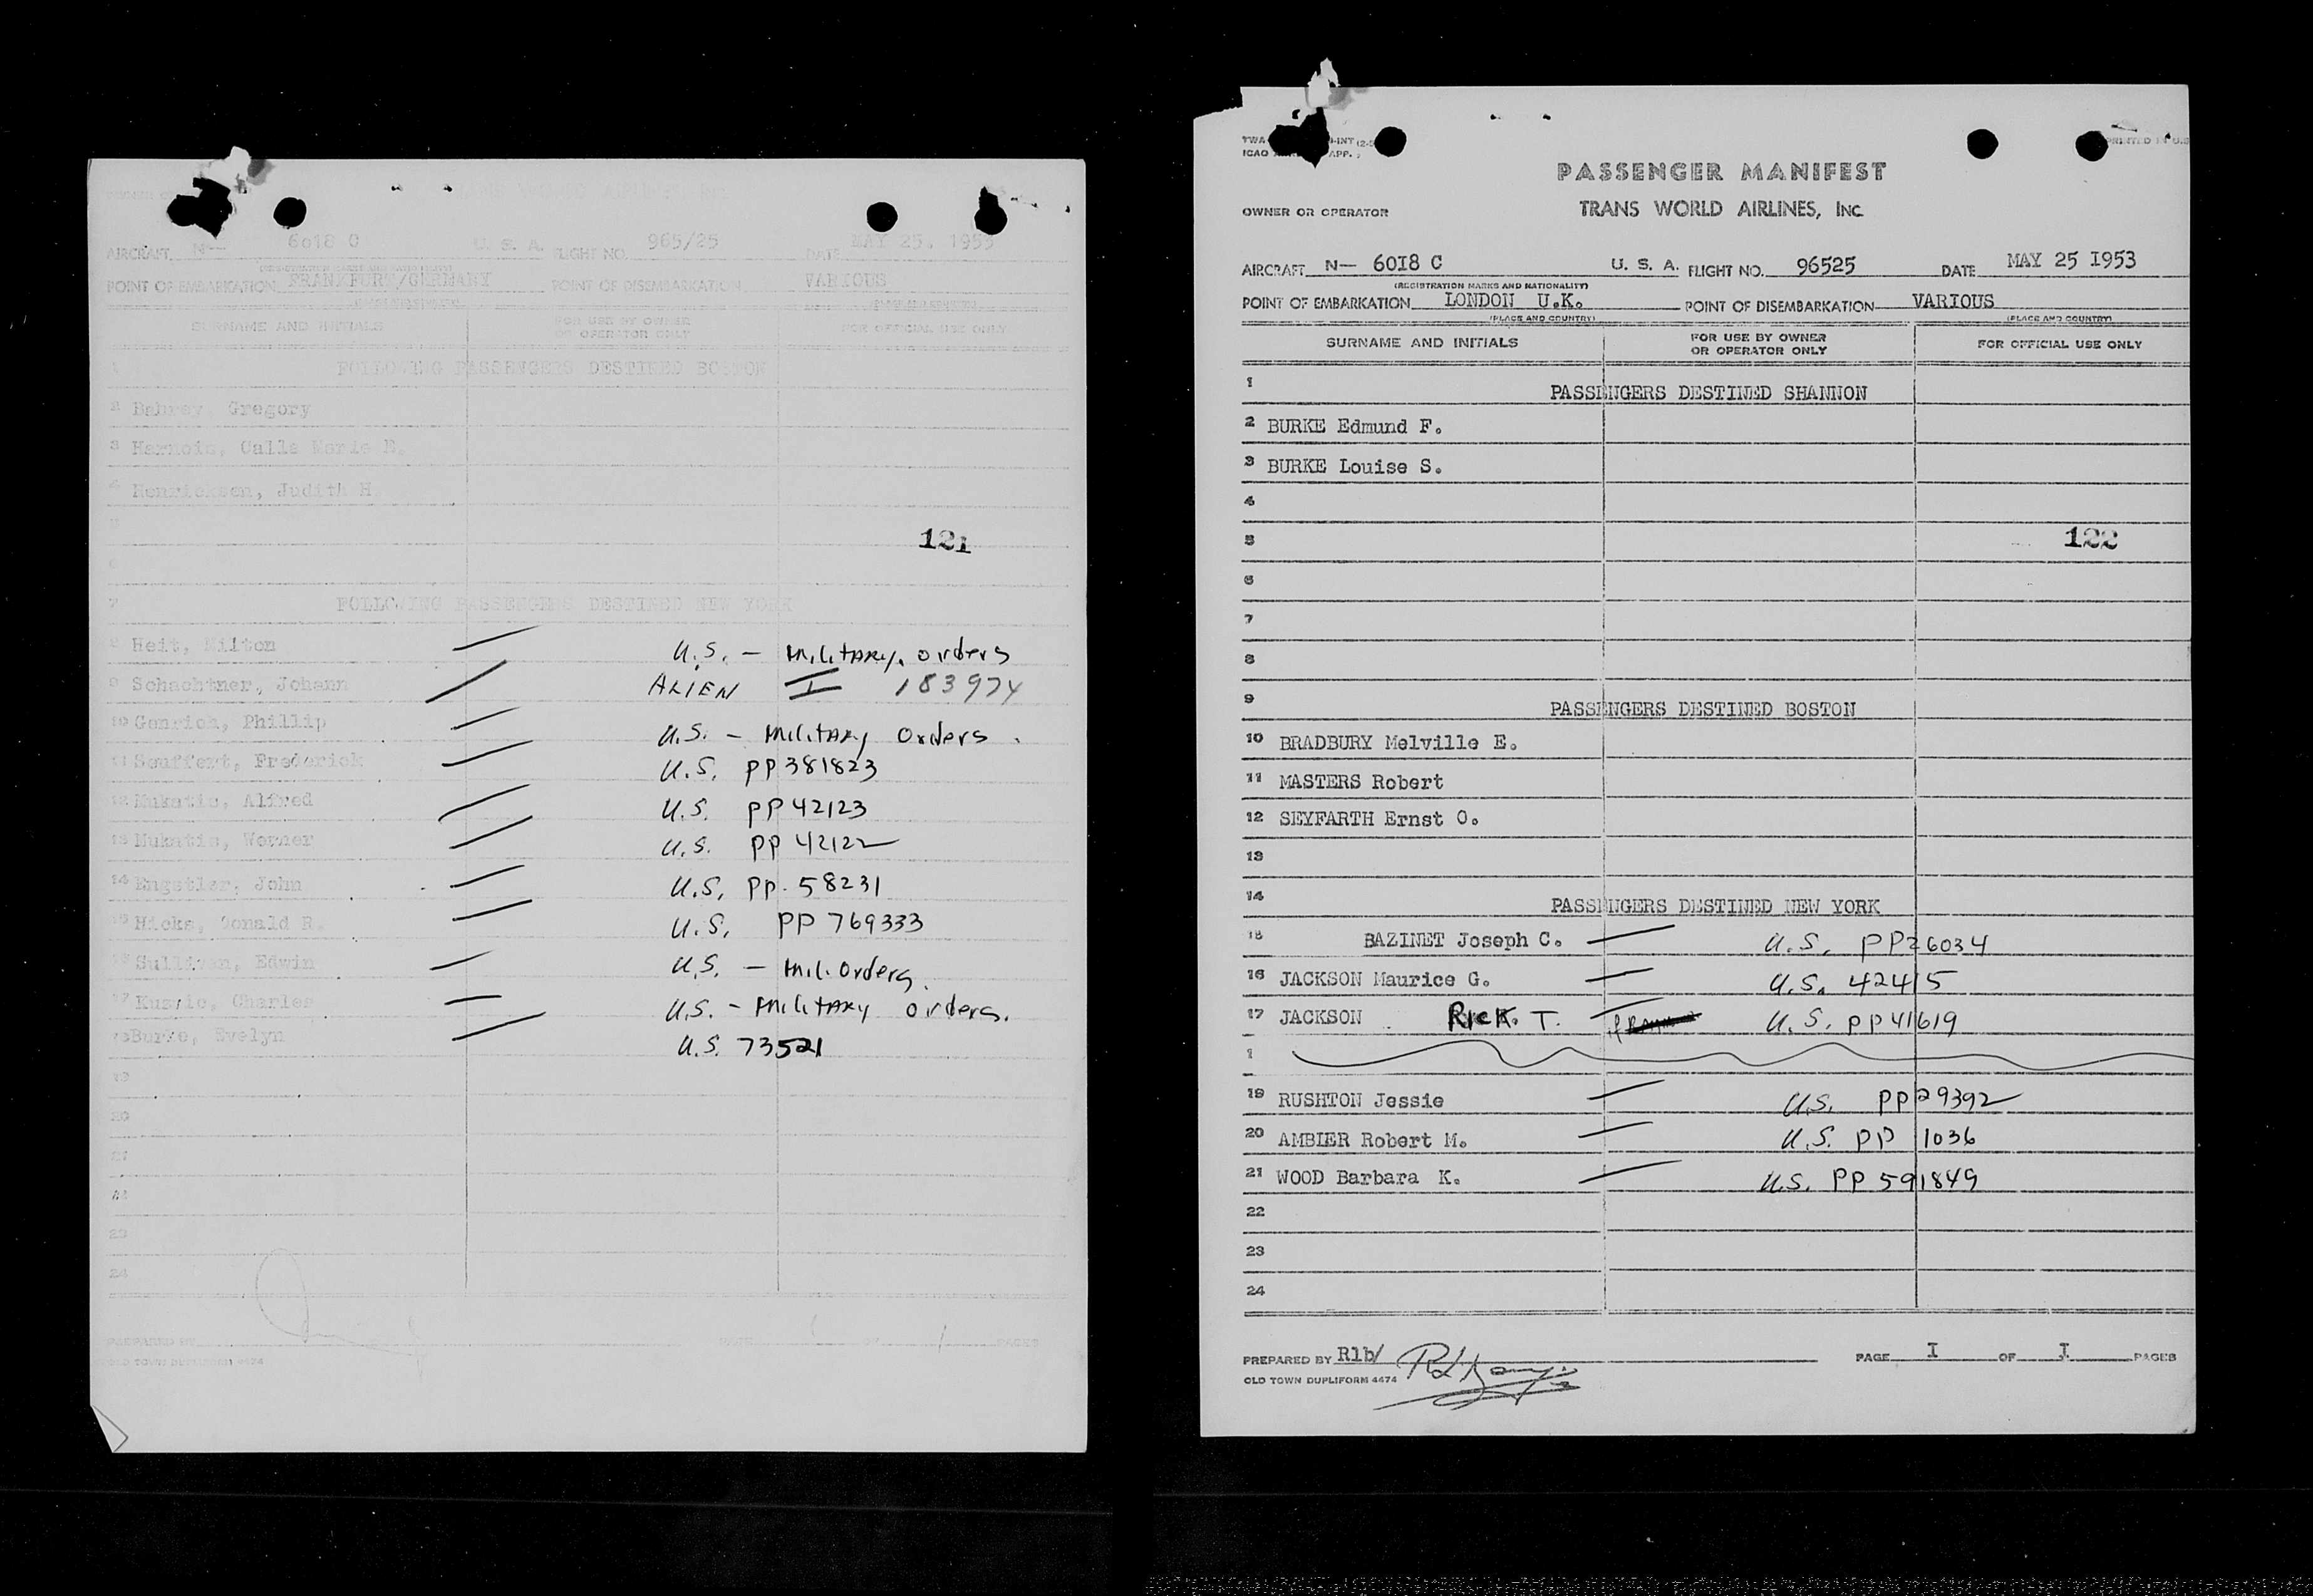 AIRCRAFT N— 6018 C U. S. A. FLIGHT NO. 965/25 DATE MAY 25. 1953
POINT OF EMBARKATION FRANKFURT/GERMANY POINT OF DISEMBARKATION VARIOUS
SURNAME AND INITIALS FOR USE BY OWNER OR OPERATOR ONLY FOR OFFICIAL USE ONLY
1 FOLLOWING PASSENGERS DESTINED BOSTON
2 Gregory
3 Harnois, Calle Marie E.
4 Henricksen, Judith H
5
121
6
7 FOLLOWING PASSENGERS DESTINED NEW YORK
8 Heit, Milton U.S. — Military orders
9 Schachtner, Johann ALIEN I 183974
10 Genrich, Phillip U.S. — Military Orders.
11 Seuffert, Frederick U.S. PP 381823
12 Mukatis, Alfred U.S. PP 42123
13 Mukatis, Werner U.S. PP 42122
14 Engstler, John U.S. PP. 58231
15 Hicks, Donald R. U.S. PP 769333
16 Sullivan, Edwin U.S. — Mil. Orders.
17 Charles U.S. — Military orders.
18 Burke, Evelyn U.S. 73521
19
20
21
22
23
24
PREPARED BY PAGE 1 OF 1 PAGES
OLD TOWN DUPLIFORM 4474
TWA -INT PRINTED IN U.S
ICAO APP.
PASSENGER MANIFEST
OWNER OR OPERATOR TRANS WORLD AIRLINES, INC.
AIRCRAFT N— 6018 C U. S. A. FLIGHT NO. 96525 DATE MAY 25 1953
(REGISTRATION MARKS AND NATIONALITY)
POINT OF EMBARKATION LONDON U.K. POINT OF DISEMBARKATION VARIOUS
(PLACE AND COUNTRY) (PLACE AND COUNTRY)
SURNAME AND INITIALS FOR USE BY OWNER OR OPERATOR ONLY FOR OFFICIAL USE ONLY
1 PASSENGERS DESTINED SHANNON
2 BURKE Edmund F.
3 BURKE Louise S.
4
5 122
6
7
8
9 PASSENGERS DESTINED BOSTON
10 BRADBURY Melville E.
11 MASTERS Robert
12 SEYFARTH Ernst O.
13
14 PASSENGERS DESTINED NEW YORK
15 BAZINET Joseph C. U.S. PP26034
16 JACKSON Maurice G. U.S. 42415
17 JACKSON RICK. T. U.S. PP41619
1
19 RUSHTON Jessie U.S. PP29392
20 AMBIER Robert M. U.S. PP 1036
21 WOOD Barbara K. U.S. PP 591849
22
23
24
PREPARED BY Rlb/ PAGE I OF I PAGES
OLD TOWN DUPLIFORM 4474